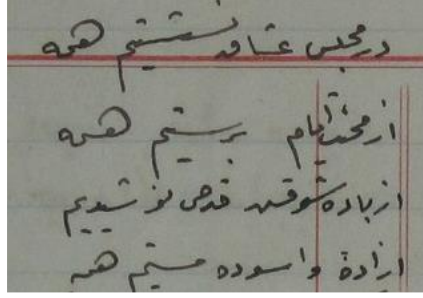 در مجلس عشاق نشستیم همه
از محنت ایام برستیم همه
از باده شوقش قدحی نوشیدیم
ازادهٔ واسوده مستیم همه